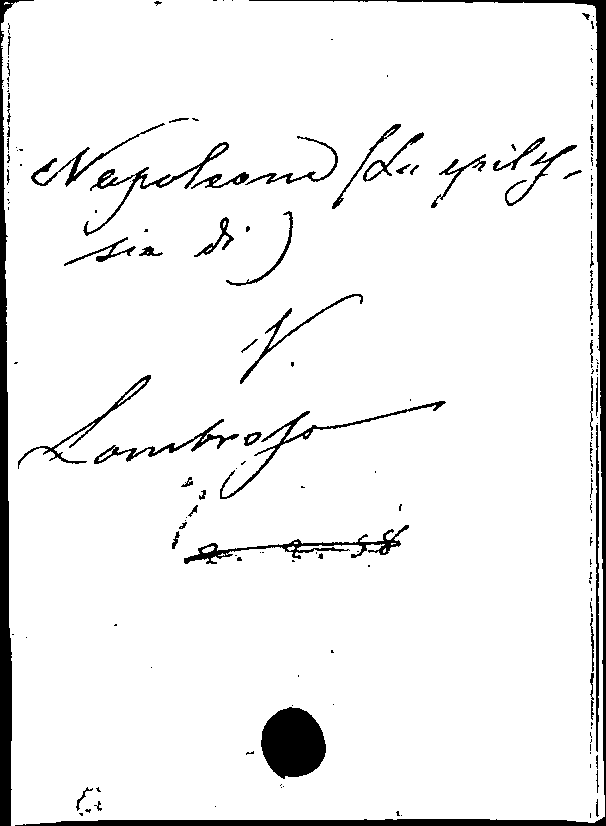 Napoleone (La epiles-
sia di)
V.
Lombroso
2. 2. 58